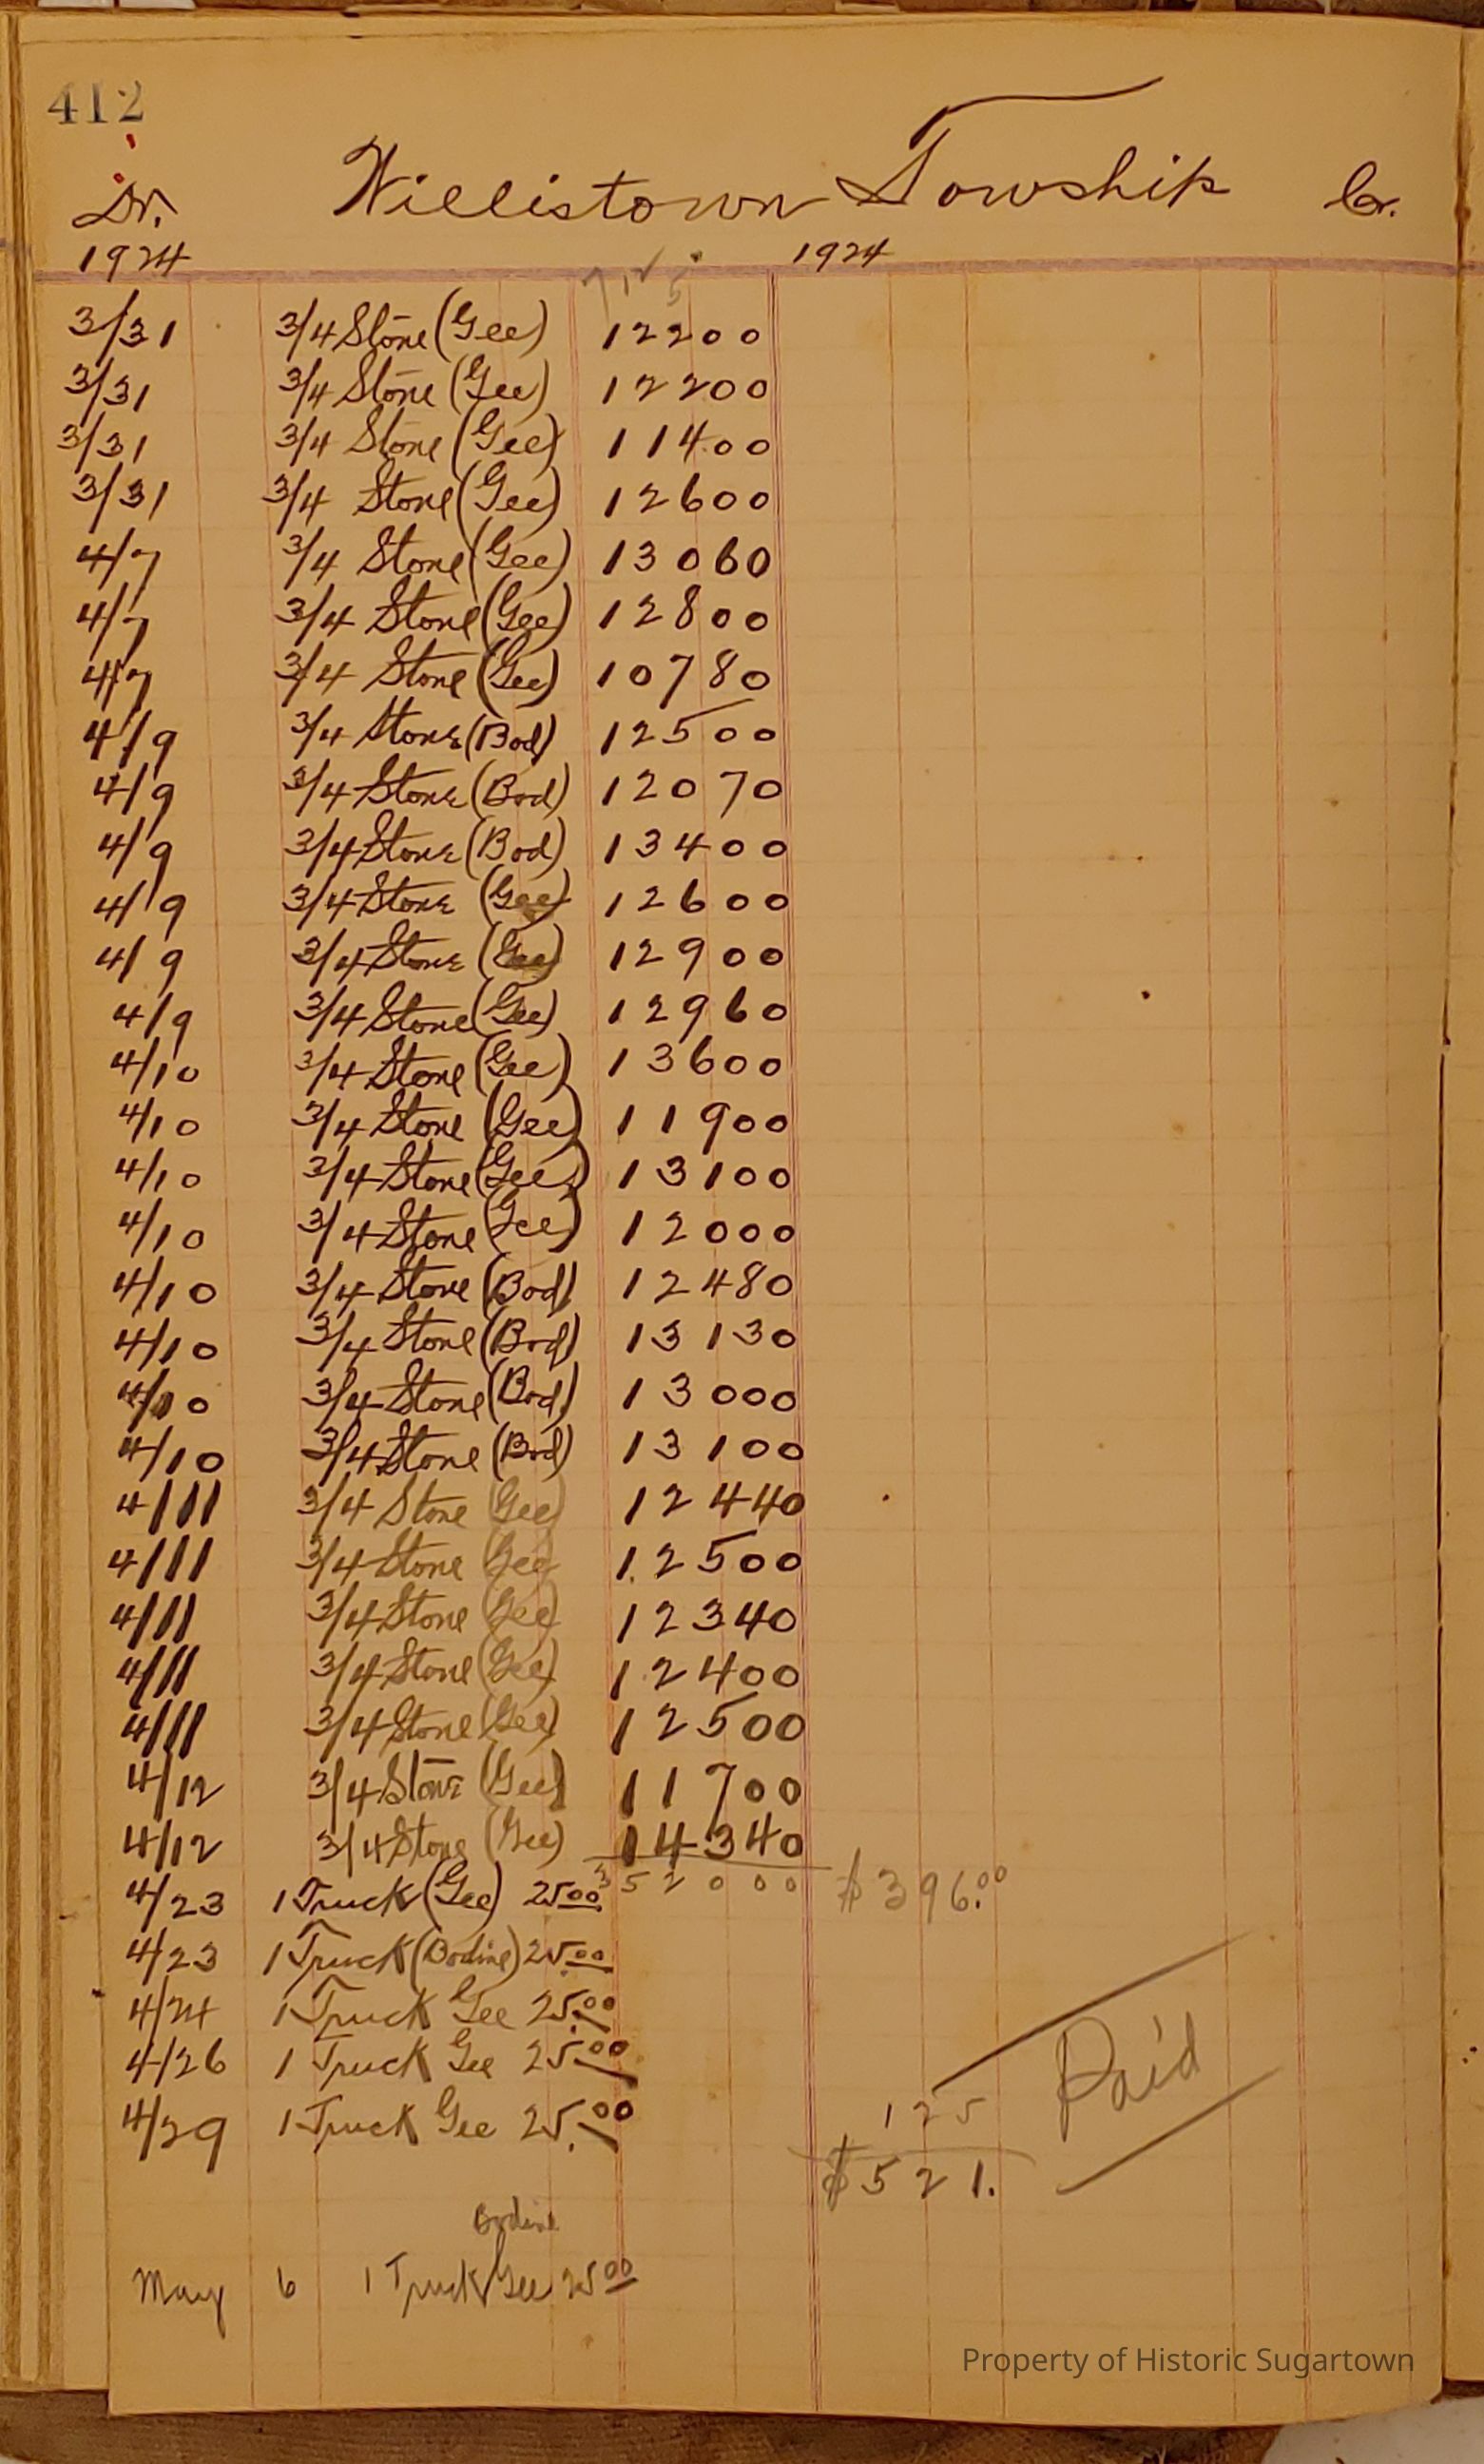 412
Dr. Willistown Towship Cr.
1924 1924
3/31 3/4 Stone (Gee) 12200
3/31 3/4 Stone (Gee) 12200
3/31 3/4 Stone (Gee) 11400
3/31 3/4 Stone (Gee) 12600
4/7 3/4 Stone (Gee) 13060
4/7 3/4 Stone (Gee) 12800
4/7 3/4 Stone (Gee) 10780
4/9 3/4 Stone (Bod) 12500
4/9 3/4 Stone (Bod) 12070
4/9 3/4 Stone (Bod) 13400
4/9 3/4 Stone (Gee) 12600
4/9 3/4 Stone (Gee) 12900
4/9 3/4 Stone (Gee) 12960
4/10 3/4 Stone (Gee) 13600
4/10 3/4 Stone (Gee) 11900
4/10 3/4 Stone (Gee) 13100
4/10 3/4 Stone (Gee) 12000
4/10 3/4 Stone (Bod) 12480
4/10 3/4 Stone (Bod) 13130
4/10 3/4 Stone (Bod) 13000
4/10 3/4 Stone (Bod) 13100
4/11 3/4 Stone (Gee) 12440
4/11 3/4 Stone (Gee) 12500
4/11 3/4 Stone (Gee) 12340
4/11 3/4 Stone (Gee) 12400
4/11 3/4 Stone (Gee) 12500
4/12 3/4 Stone (Gee) 11700
4/12 3/4 Stone (Gee) 14340
4/23 1 Truck (Gee) 25.00 352000 $396.00
4/23 1 Truck (Bodine) 25.00
4/24 1 Truck Gee 25.00
4/26 1 Truck Gee 25.00
4/29 1 Truck Gee 25.00 125 Paid
$521.
Bodine
May 6 1 Truck Gee 25.00
Property of Historic Sugartown